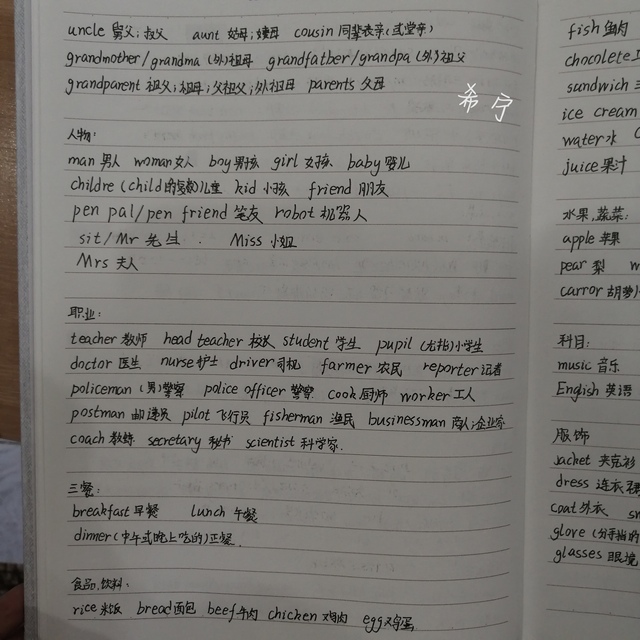 uncle 舅父;叔父 aunt 姑母;姨母 cousin 同辈表亲(或堂亲)
grandmother/grandma (外)祖母 grandfather/grandpa (外)祖父
grandparent 祖父;祖母;父祖父;外祖母 parents 父母
希宁
人物:
man 男人 woman 女人 boy 男孩 girl 女孩 baby 婴儿
childre (child的复数)儿童 kid 小孩 friend 朋友
pen pal/pen friend 笔友 robot 机器人
sit/Mr 先生. Miss 小姐
Mrs 夫人
职业:
teacher 教师 head teacher 校长 student 学生 pupil (尤指)小学生
doctor 医生 nurse 护士 driver 司机 farmer 农民 reporter 记者
policeman (男)警察 police officer 警察 cook 厨师 worker 工人
postman 邮递员 pilot 飞行员 fisherman 渔民 businessman 商人;企业家
coach 教练 secretary 秘书 scientist 科学家.
三餐:
breakfast 早餐 lunch 午餐
dinner (中午或晚上吃的)正餐.
食品,饮料:
rice 米饭 bread 面包 beef 牛肉 chicken 鸡肉 egg 鸡蛋
fish 鱼肉
chocolete
sandwich
ice cream
water 水
juice 果汁
水果,蔬菜:
apple 苹果
pear 梨
carror 胡萝
科目:
music 音乐
English 英语
服饰
jacket 夹克衫
dress 连衣裙
coat 外衣
glove (分手指的
glasses 眼镜